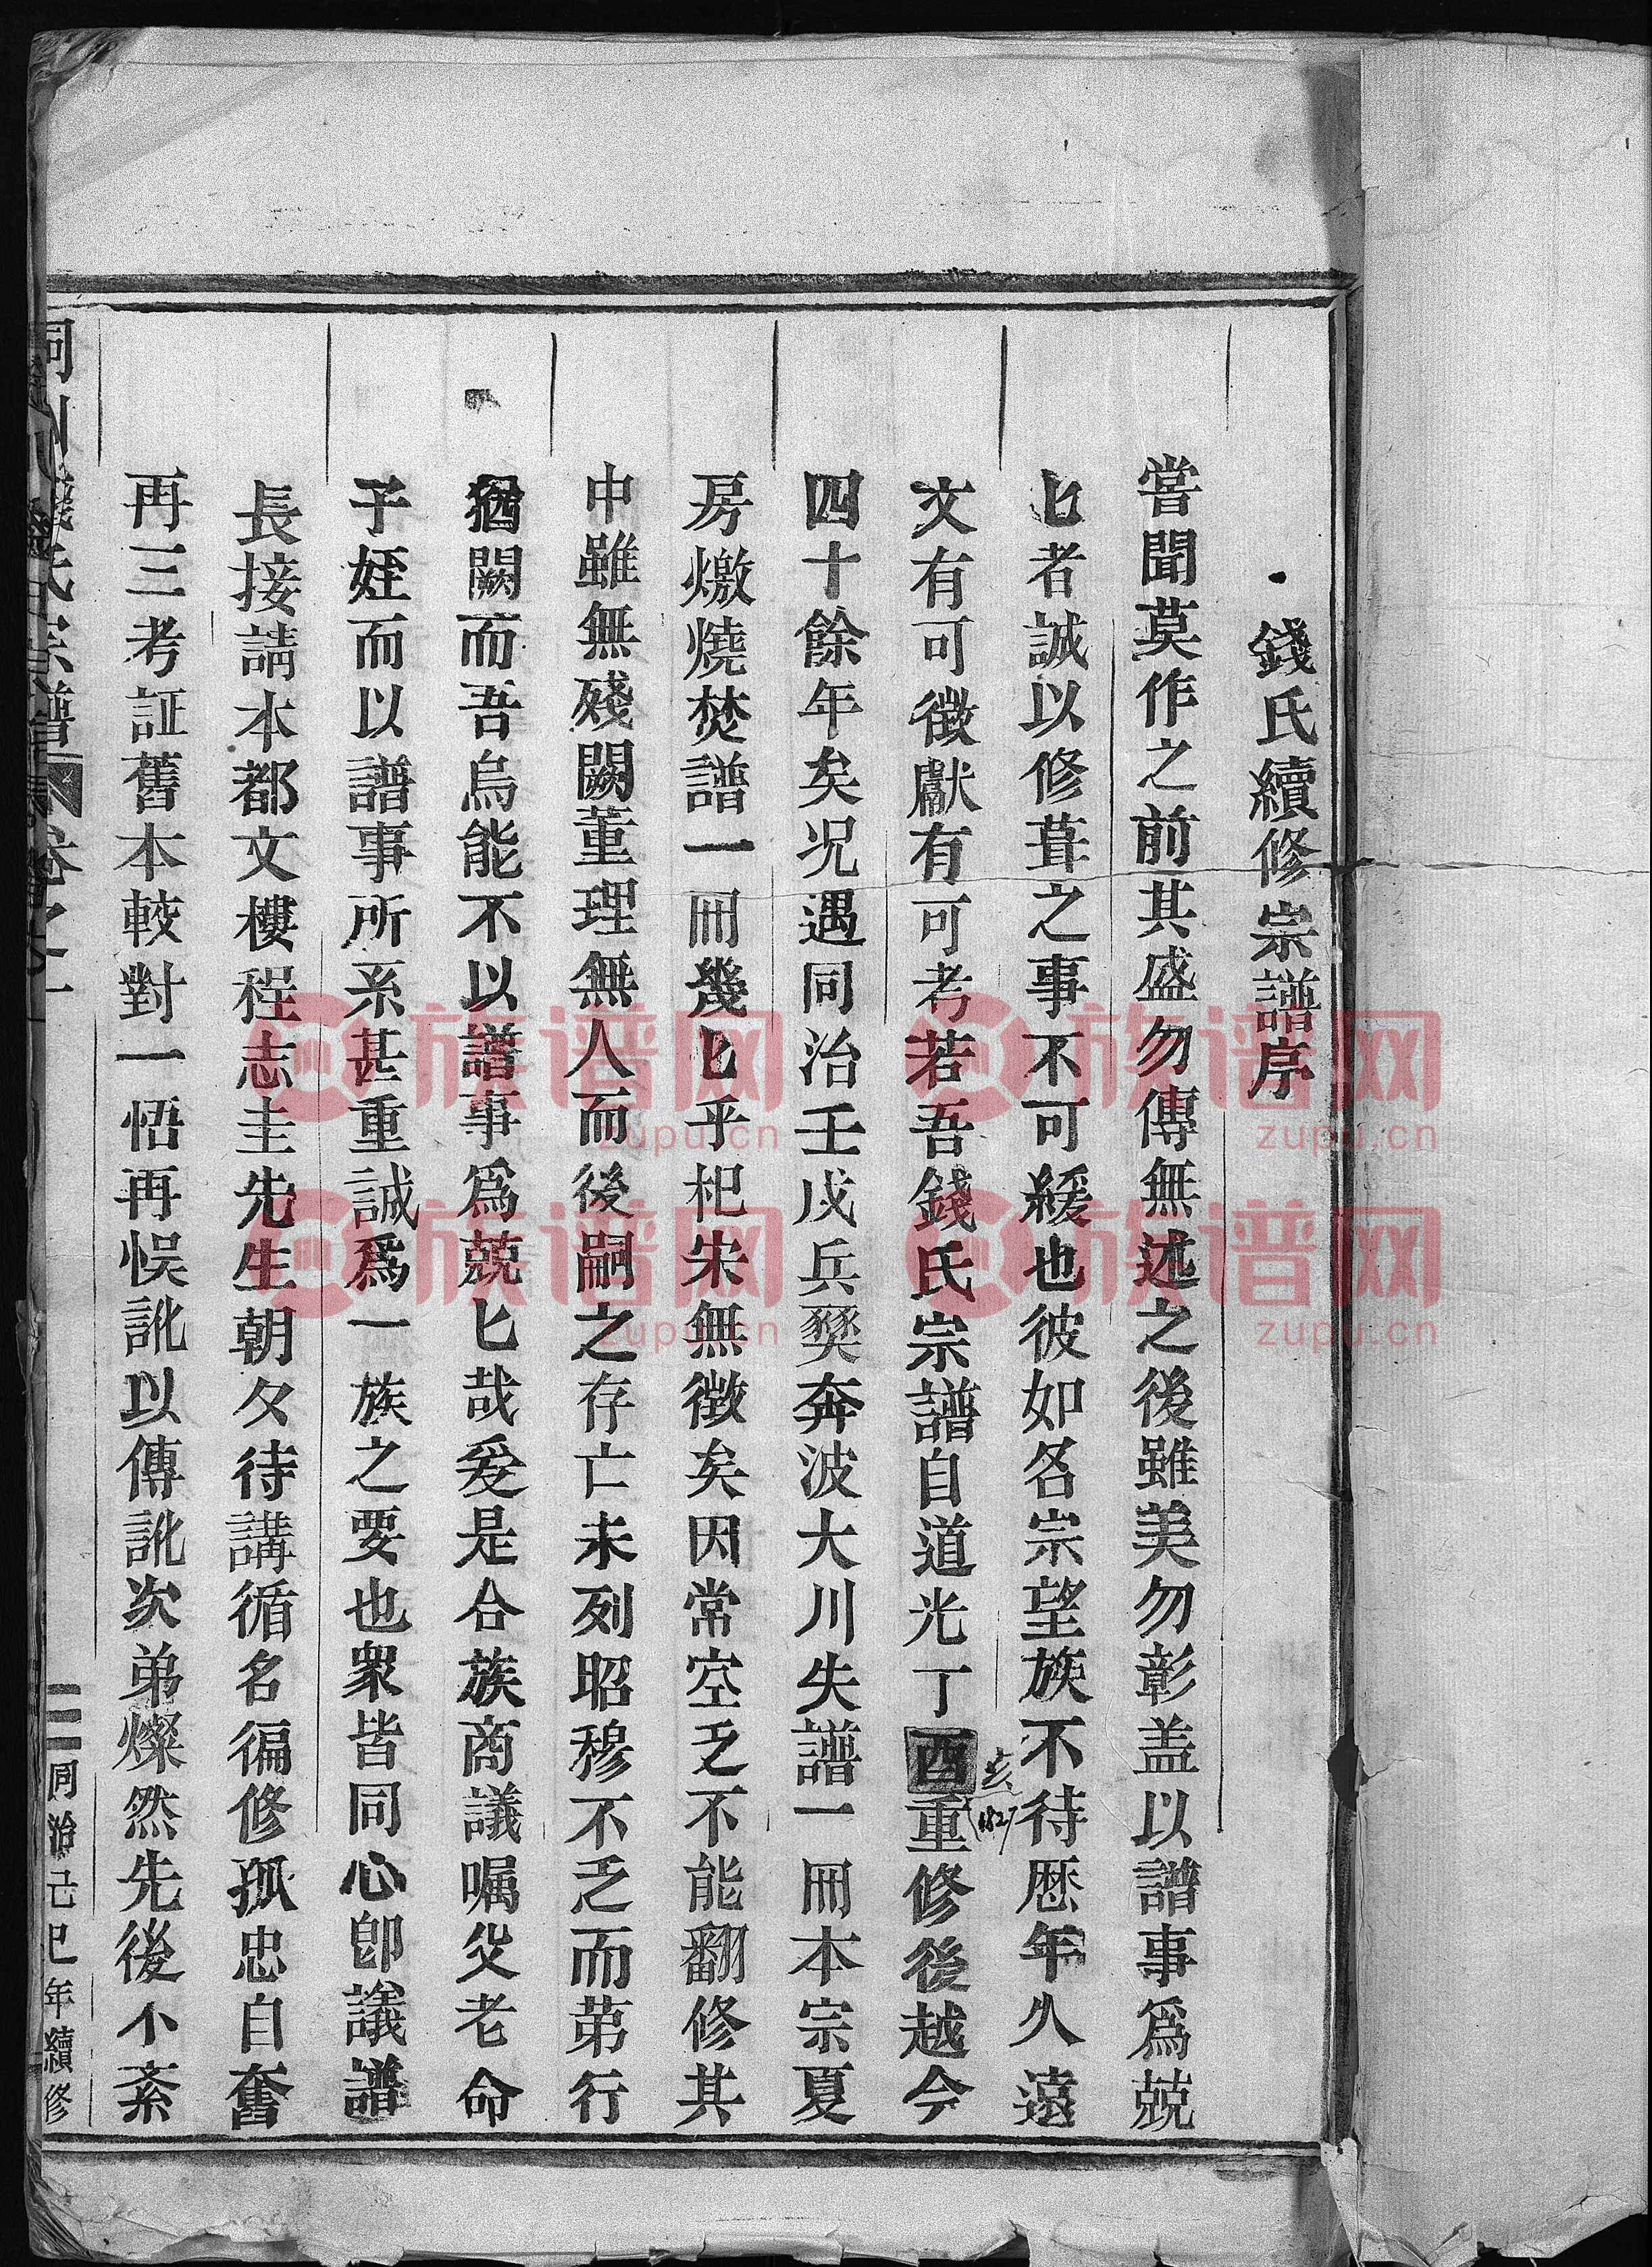 錢氏續修宗譜序
嘗聞莫作之前其盛勿傳無述之後雖美勿彰盖以譜事爲兢
匕者誠以修葺之事不可緩也彼如名宗望族不待歷年久遠
文有可徵獻有可考若吾錢氏宗譜自道光丁酉重修後越今
亥
1827
四十餘年矣况遇同治壬戌兵燹奔波大川失譜一冊本宗夏
房燬燒焚譜一冊幾匕乎杞宋無徵矣因常空乏不能翻修其
中雖無殘闕董理無人而後嗣之存亡未列昭穆不乏而第行
猶闕而吾烏能不以譜事爲兢匕哉爰是合族商議嘱父老命
子姪而以譜事所系甚重誠爲一族之要也衆皆同心卽議譜
長接請本都文樓程志圭先生朝夕待講循名徧修孤忠自奮
再三考証舊本較對一悟再悞訛以傳訛次弟燦然先後不紊
氏宗譜
卷之一
同治己巳年續修
族谱网
zupu.cn
族谱网
zupu.cn
族谱网
zupu.cn
族谱网
zupu.cn